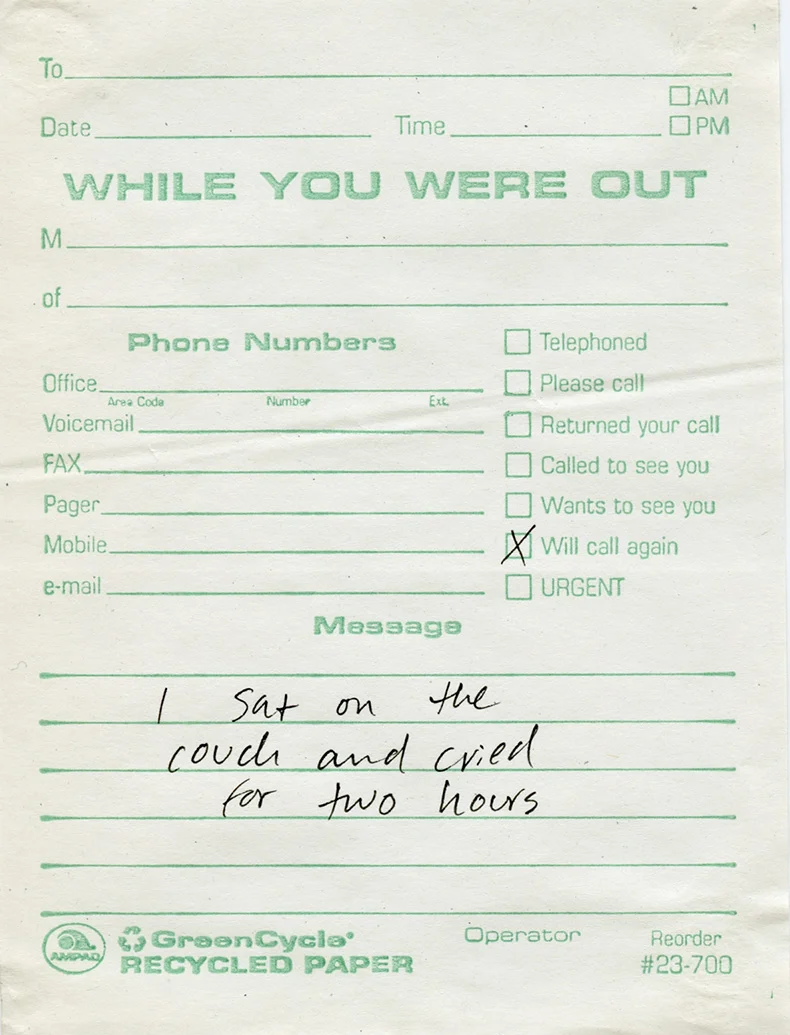 To
AM
Date Time PM
WHILE YOU WERE OUT
M
of
Phone Numbers
Telephoned
Office
Please call
Area Code Number Ext.
Voicemail
Returned your call
FAX
Called to see you
Pager
Wants to see you
Mobile
X Will call again
e-mail
URGENT
Message
I sat on the
couch and cried
for two hours
AMPAD
GreenCycle
RECYCLED PAPER
Operator
Reorder
#23-700